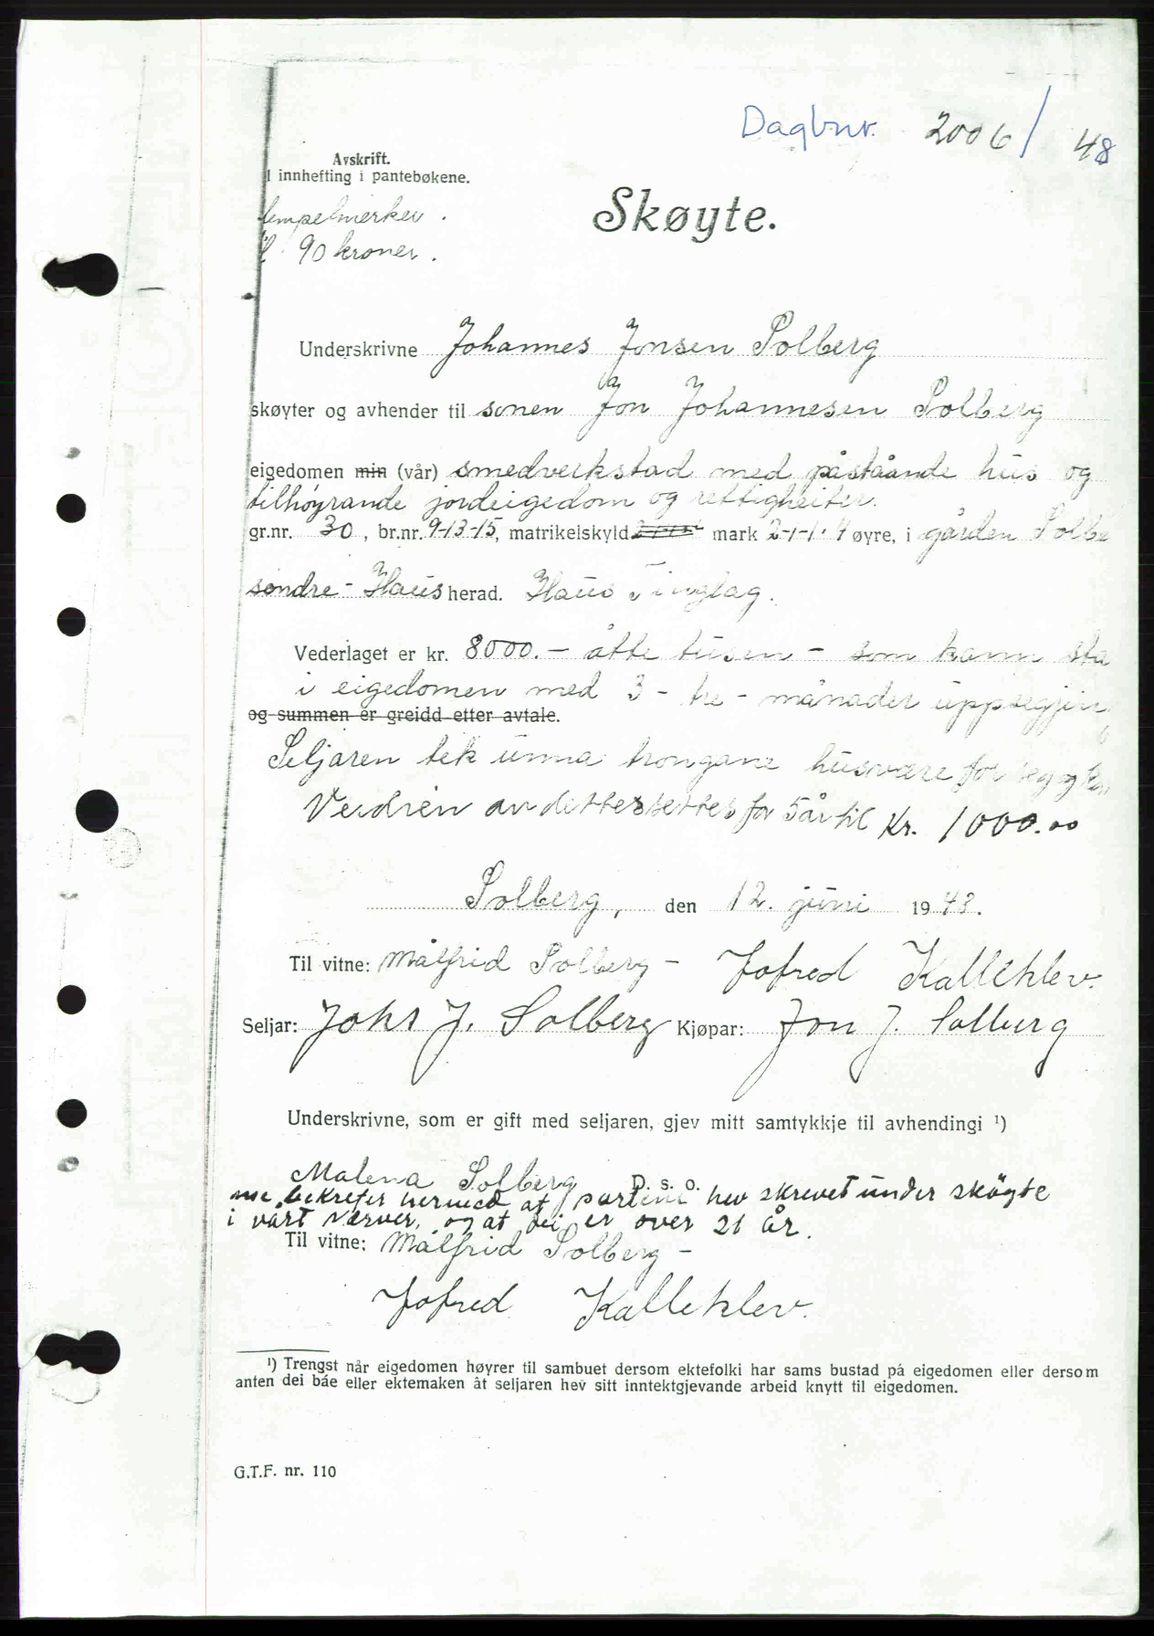 Dagbnr. 2006/48
Avskrift.
l innhefting i pantebøkene.
tempelmerker.
l. 90 kroner.
Skøyte.
Underskrivne Johannes Jonsen Solberg
skøyter og avhender til sonen Jon Johannesen Solberg
eigedomen min (vår) smedverkstad med påståande hus og
tilhøyrande jordeigedom og rettigheiter.
gr.nr. 30, br.nr. 9-13-15, matrikelskyld mark 2-1-1.4 øyre, i gården Solbe
søndre - Haus herad. Haus Tinglag.
Vederlaget er kr. 8000.- åtte tusen - som kann sta
i eigedomen med 3 - tre - månader uppsegjin
og summen er greidd etter avtale.
Seljaren tek unna trongane husvære for seg og
Verdien av dette settes for 5 år til Kr. 1000.00
Solberg, den 12. juni 1943.
Til vitne: Målfrid Solberg - Jofred Kalleklev.
Seljar: Johs J. Solberg Kjøpar: Jon J. Solberg
Underskrivne, som er gift med seljaren, gjev mitt samtykkje til avhendingi ¹)
Malena Solberg D. s. o.
me bekrefter hermed at partene hev skrevet under skøyte
i vårt nærver, og at dei er over 21 år.
Til vitne: Målfrid Solberg -
Jofred Kalleklev.
¹) Trengst når eigedomen høyrer til sambuet dersom ektefolki har sams bustad på eigedomen eller dersom
anten dei båe eller ektemaken åt seljaren hev sitt inntektgjevande arbeid knytt til eigedomen.
G.T.F. nr. 110